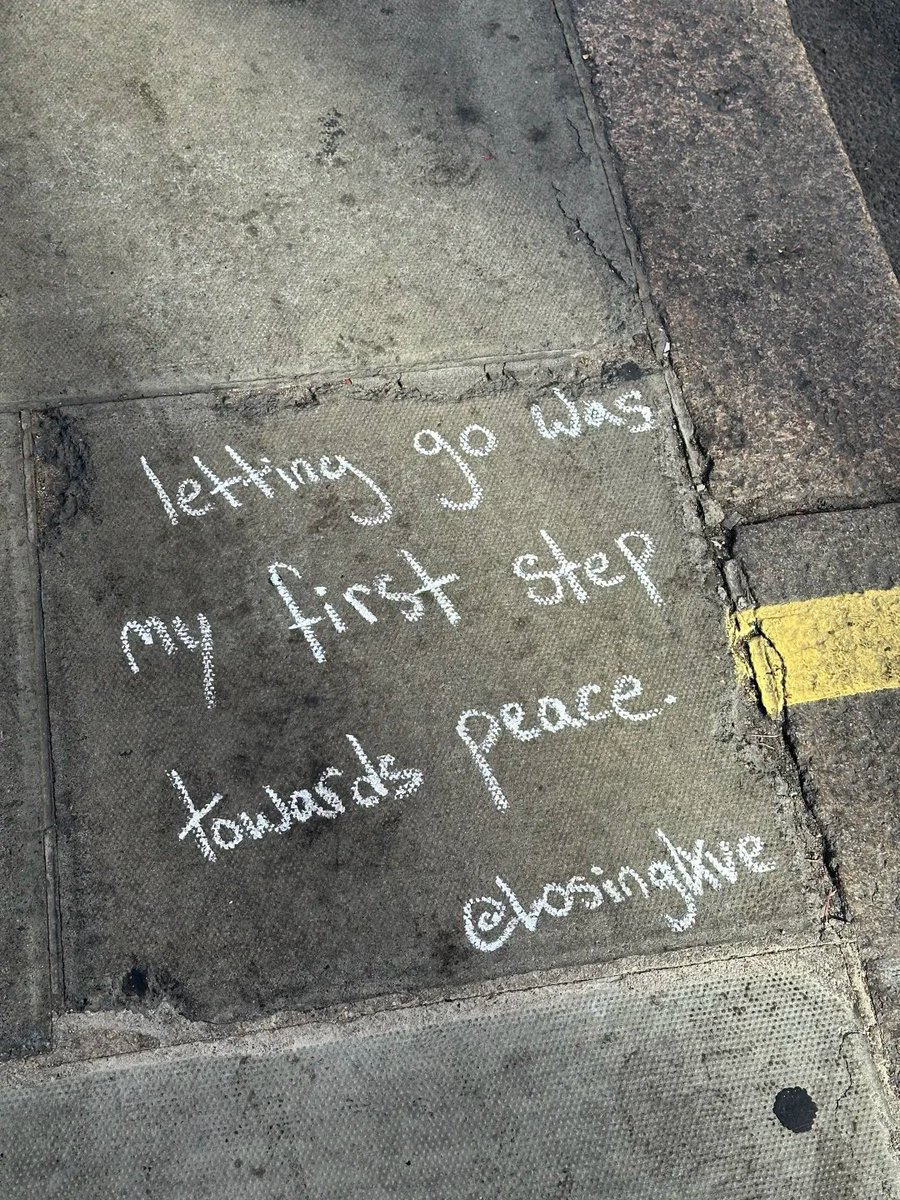 letting go was
my first step
towards peace.
@losinglkve